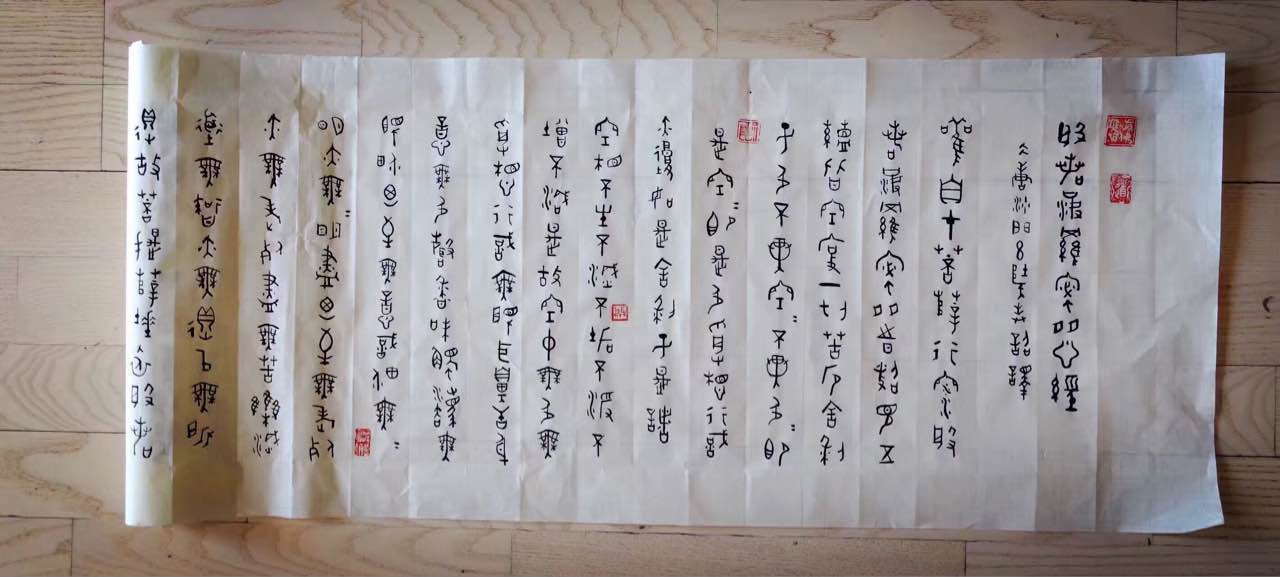 般若波羅蜜多心經
大唐沙門玄奘奉詔譯
觀自在菩薩行深般
若波羅蜜多時照見五
蘊皆空度一切苦厄舍利
子色不異空=不異色=即
是空=即是色受想行識
亦復如是舍利子是諸
空相不生不滅不垢不淨不
增不減是故空中無色無
受想行識無眼耳鼻舌身
意無色聲香味觸法無
眼界乃至無意識界無=
明亦無=明盡乃至無老死
亦無老死盡無苦集滅
道無智亦無得以無所
得故菩提薩埵依般若